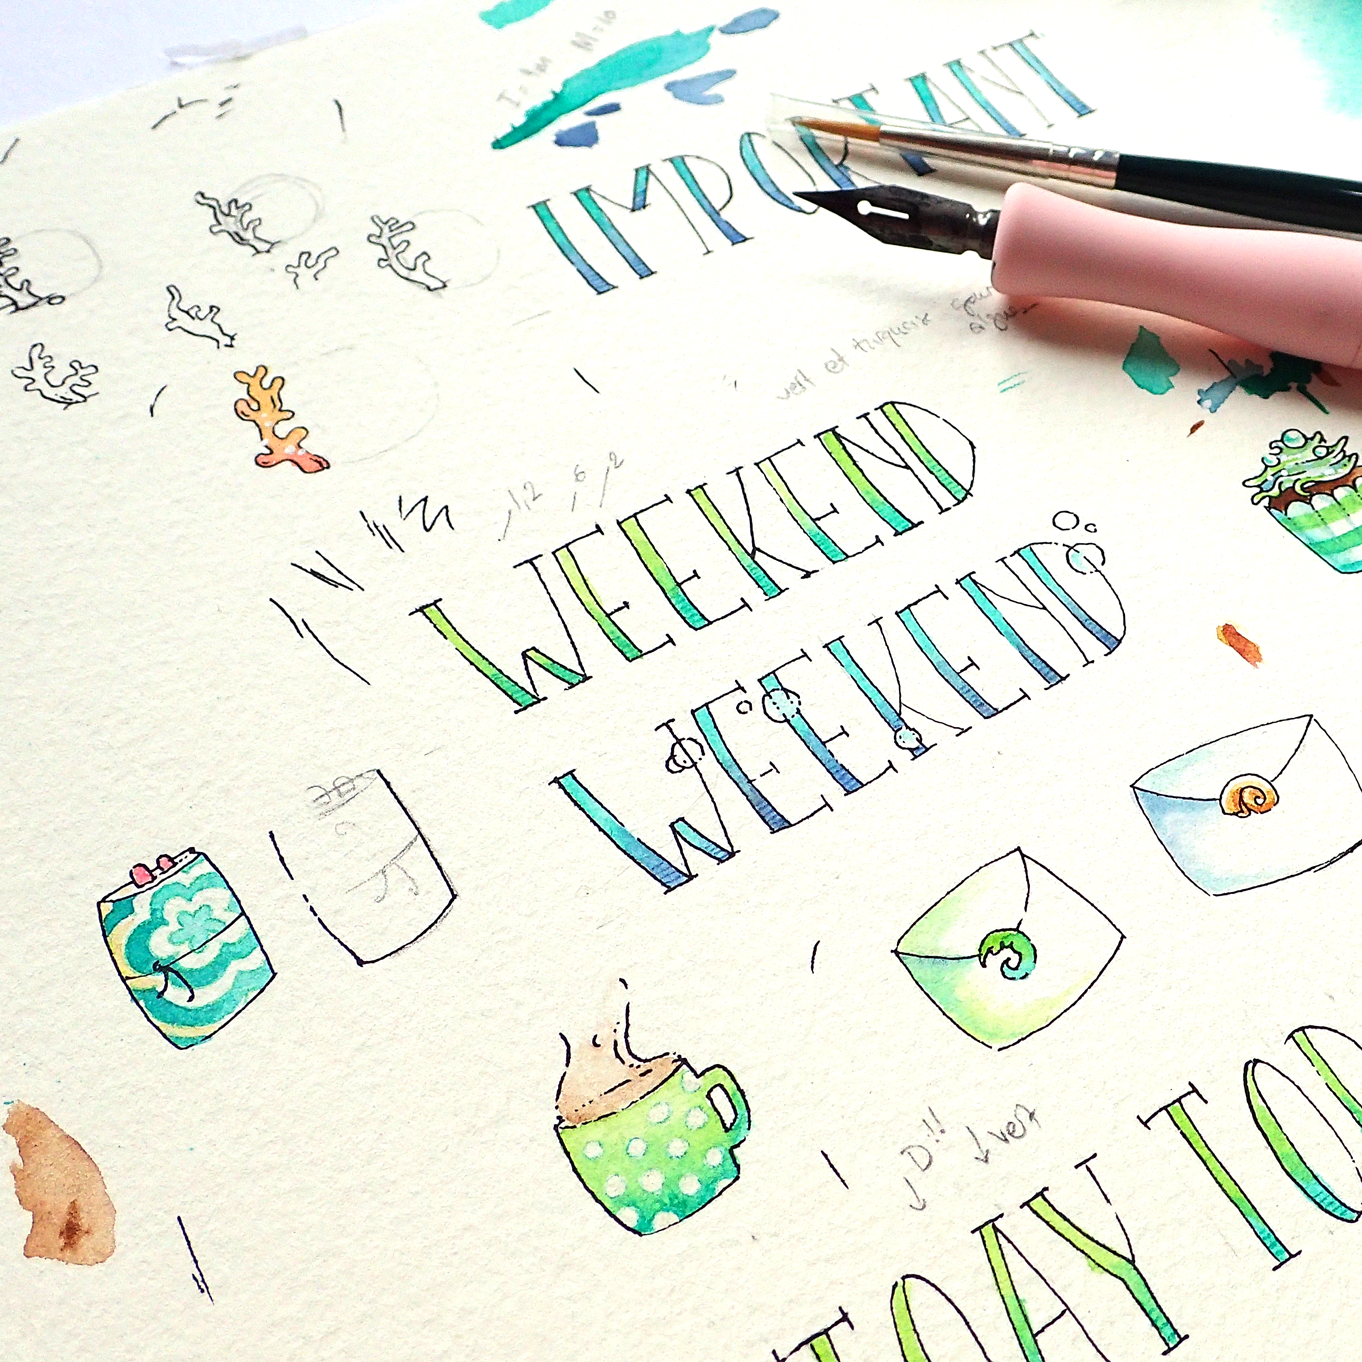 IMPORTANT
vert et turquoise
WEEKEND
WEEKEND
D!! vert
TODAY TO